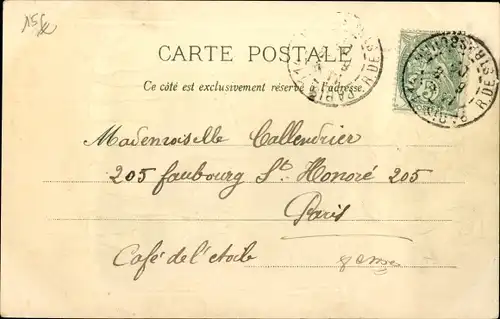 15
CARTE POSTALE
Ce côté est exclusivement réservé à l'adresse.
Mademoiselle Callendrier
205 faubourg St. Honoré 205
Paris
Café de l'etoile 8eme